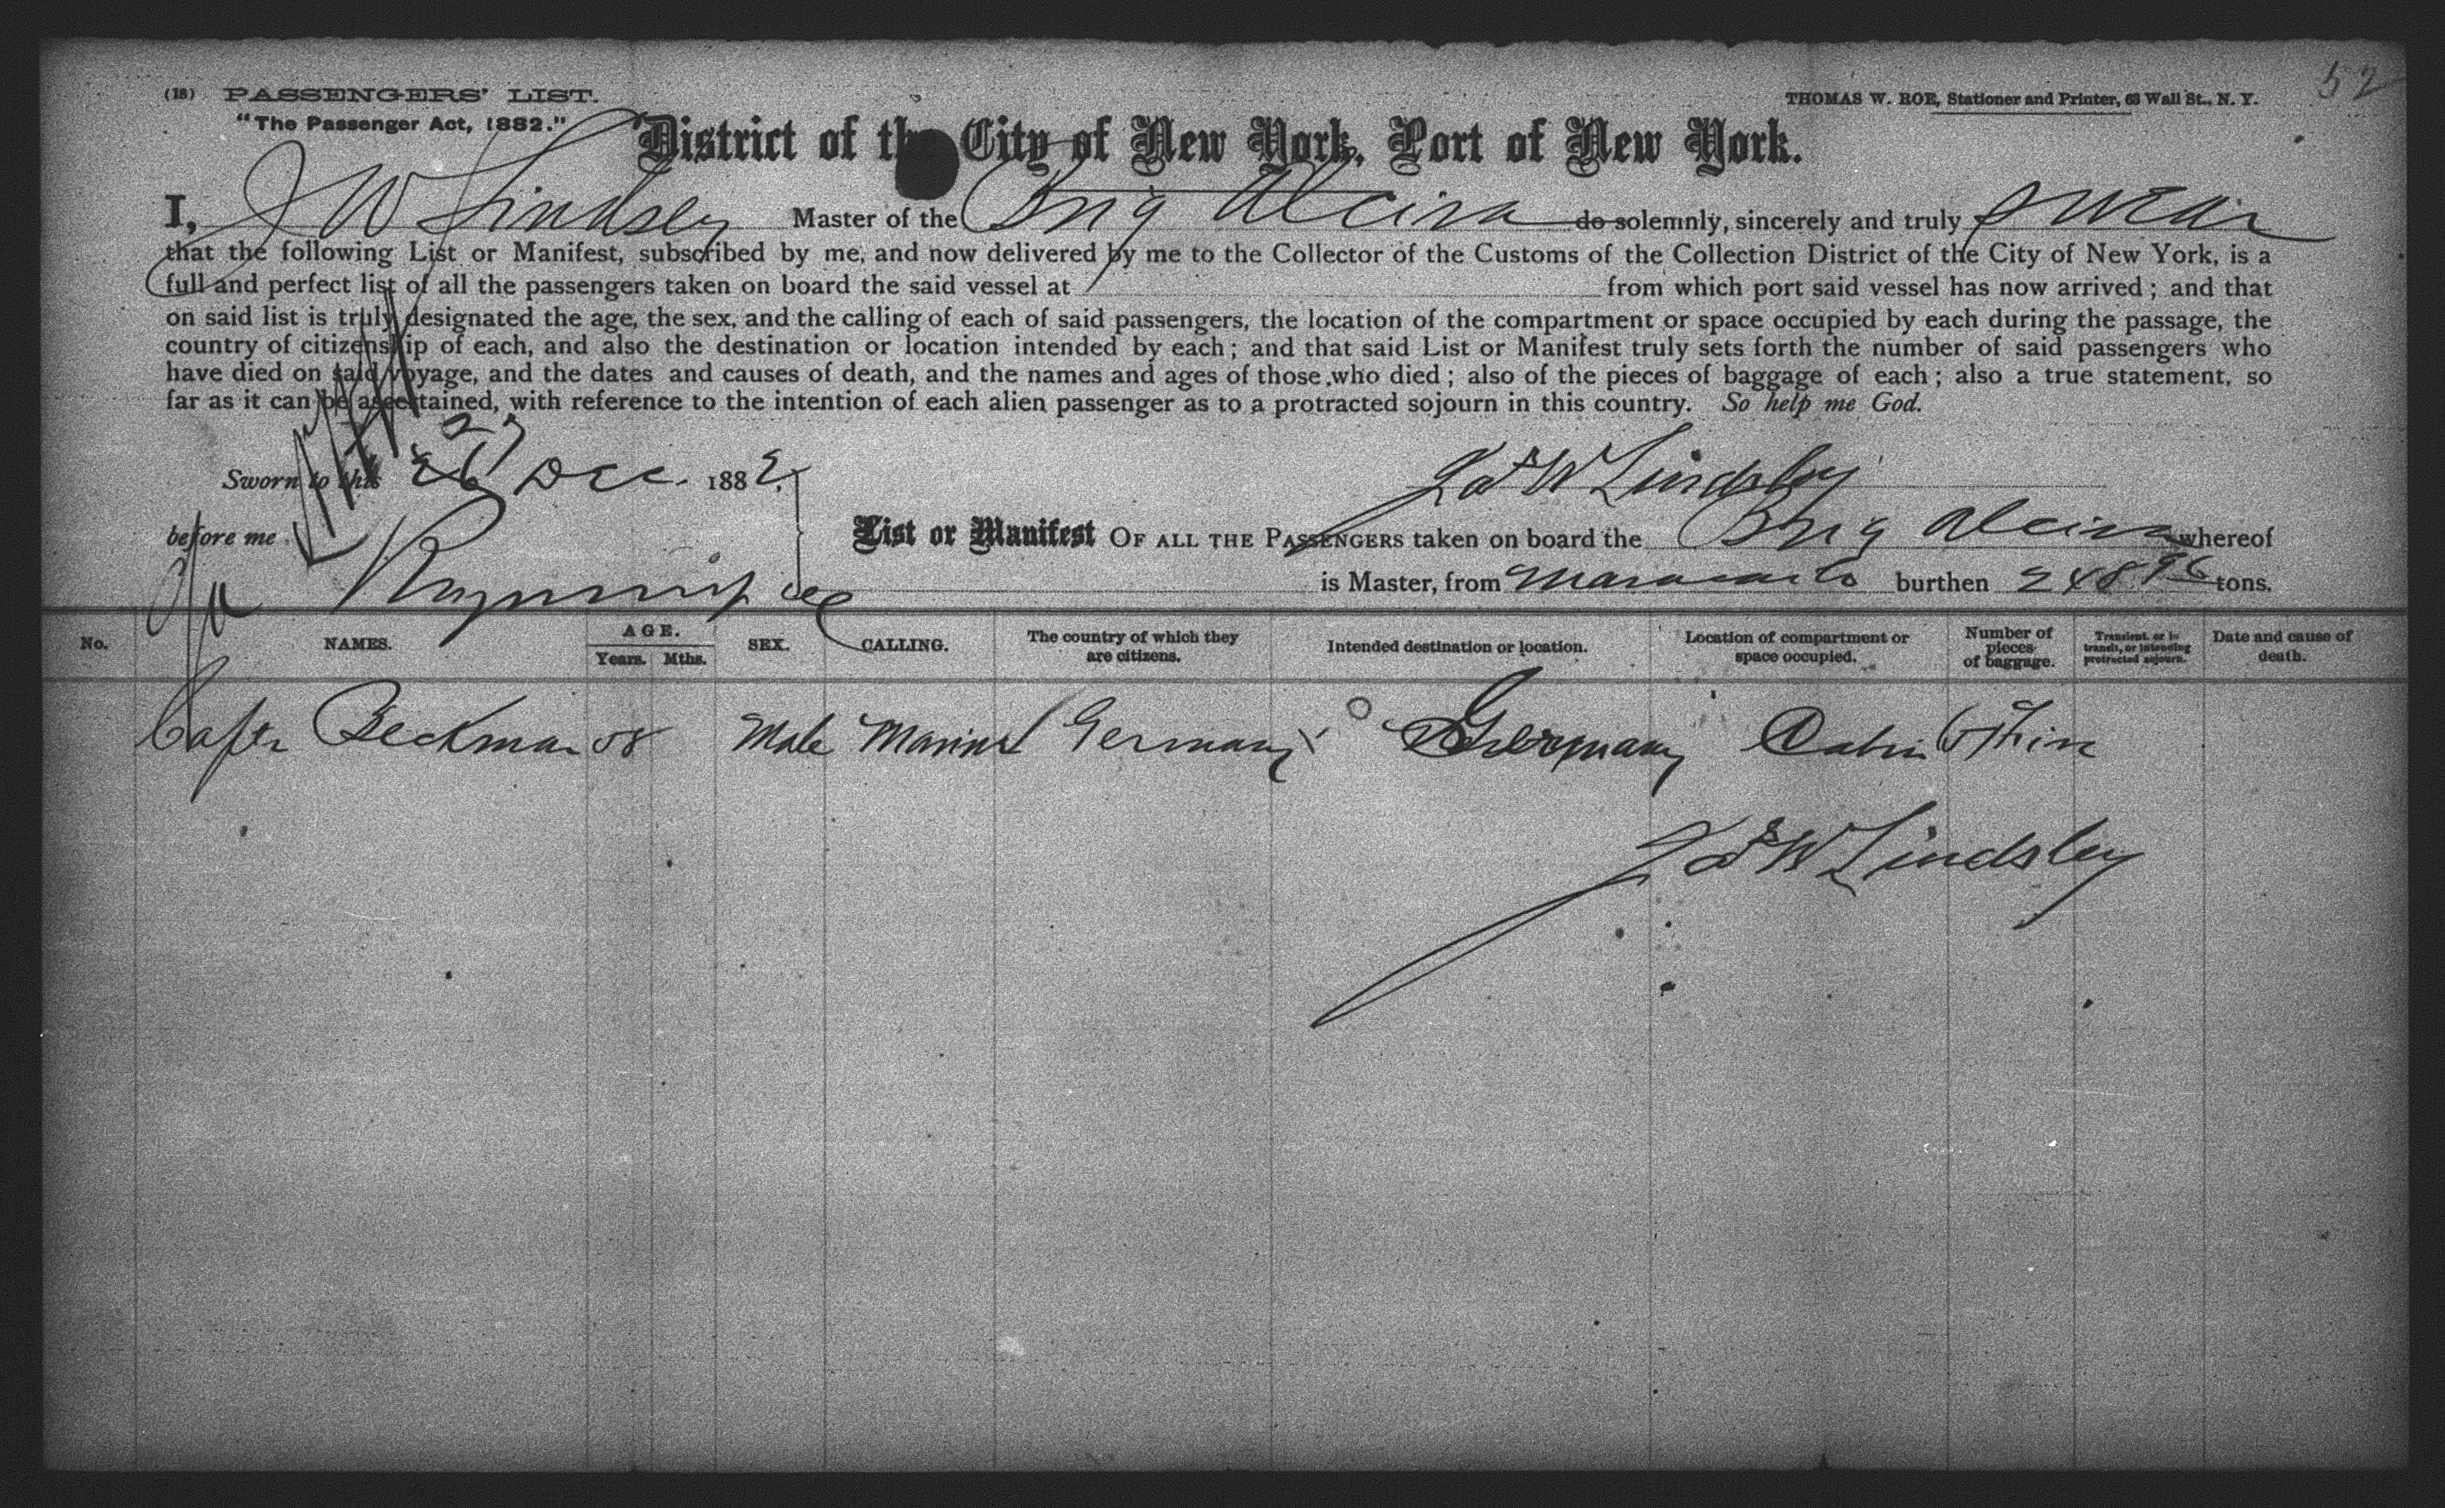 52
(18) PASSENGERS' LIST.
THOMAS W. ROE, Stationer and Printer, 63 Wall St., N. Y.
"The Passenger Act, 1882."
District of the City of New York, Port of New York.
I, J W Lindsey Master of the Brig Alcira do solemnly, sincerely and truly swear
that the following List or Manifest, subscribed by me, and now delivered by me to the Collector of the Customs of the Collection District of the City of New York, is a
full and perfect list of all the passengers taken on board the said vessel at from which port said vessel has now arrived; and that
on said list is truly designated the age, the sex, and the calling of each of said passengers, the location of the compartment or space occupied by each during the passage, the
country of citizenship of each, and also the destination or location intended by each; and that said List or Manifest truly sets forth the number of said passengers who
have died on said voyage, and the dates and causes of death, and the names and ages of those who died; also of the pieces of baggage of each; also a true statement, so
far as it can be ascertained, with reference to the intention of each alien passenger as to a protracted sojourn in this country. So help me God.
Sworn to this 27 Dec. 1882,
Jas W Lindsley
before me
List or Manifest OF ALL THE PASSENGERS taken on board the Brig Alcira whereof
is Master, from Maracaibo burthen 248 96 tons.
No. NAMES. AGE. Years. Mths. SEX. CALLING. The country of which they are citizens. Intended destination or location. Location of compartment or space occupied. Number of pieces of baggage. Transient, or in transit, or intending protracted sojourn. Date and cause of death.
Captn Beckman 58 Male Marine Germany Germany Cabin
Jas W Lindsley